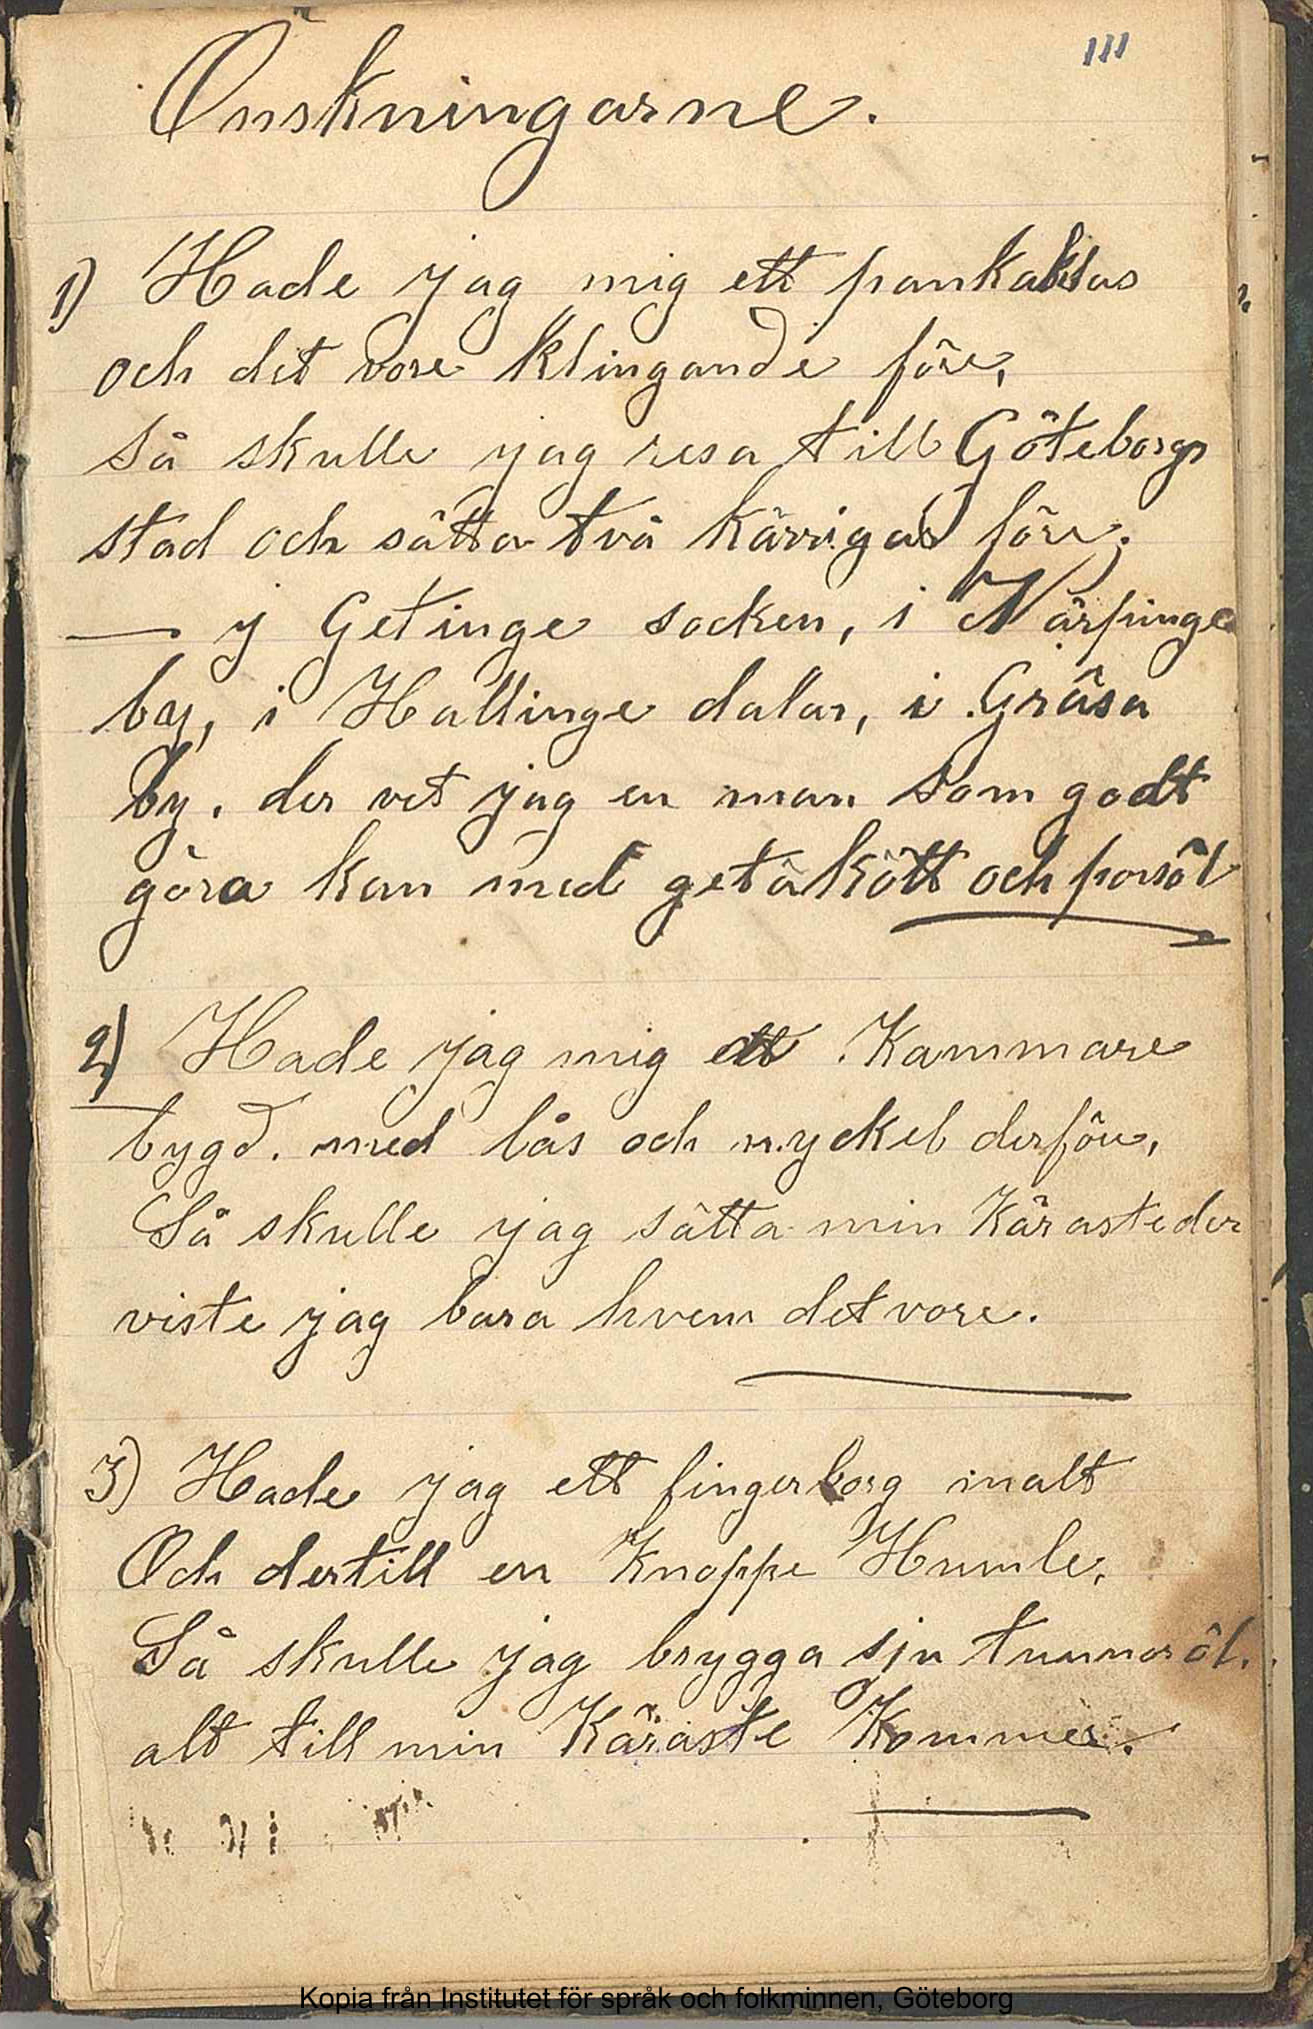 111
Önskningarne.
1) Hade jag mig ett pankaklas
och det vore klingande före,
Så skulle jag resa till Göteborgs
stad och sätta två kärrigar före;
— y Getinge socken, i Närpinge
by, i Hallinge dalar, i Gräsa
by. der vet jag en man som godt
göra kan med getäkött och porsöl
2) Hade jag mig ett Kammare
bygd. med lås och nyckel derföre,
Så skulle jag sätta min Käraste der
viste jag bara hvem det vore.
3) Hade jag ett fingerborg malt
Och dertill en Knoppe Humle,
Så skulle jag brygga sju tunnor öl.
alt till min Käraste Kommer.
Kopia från Institutet för språk och folkminnen, Göteborg